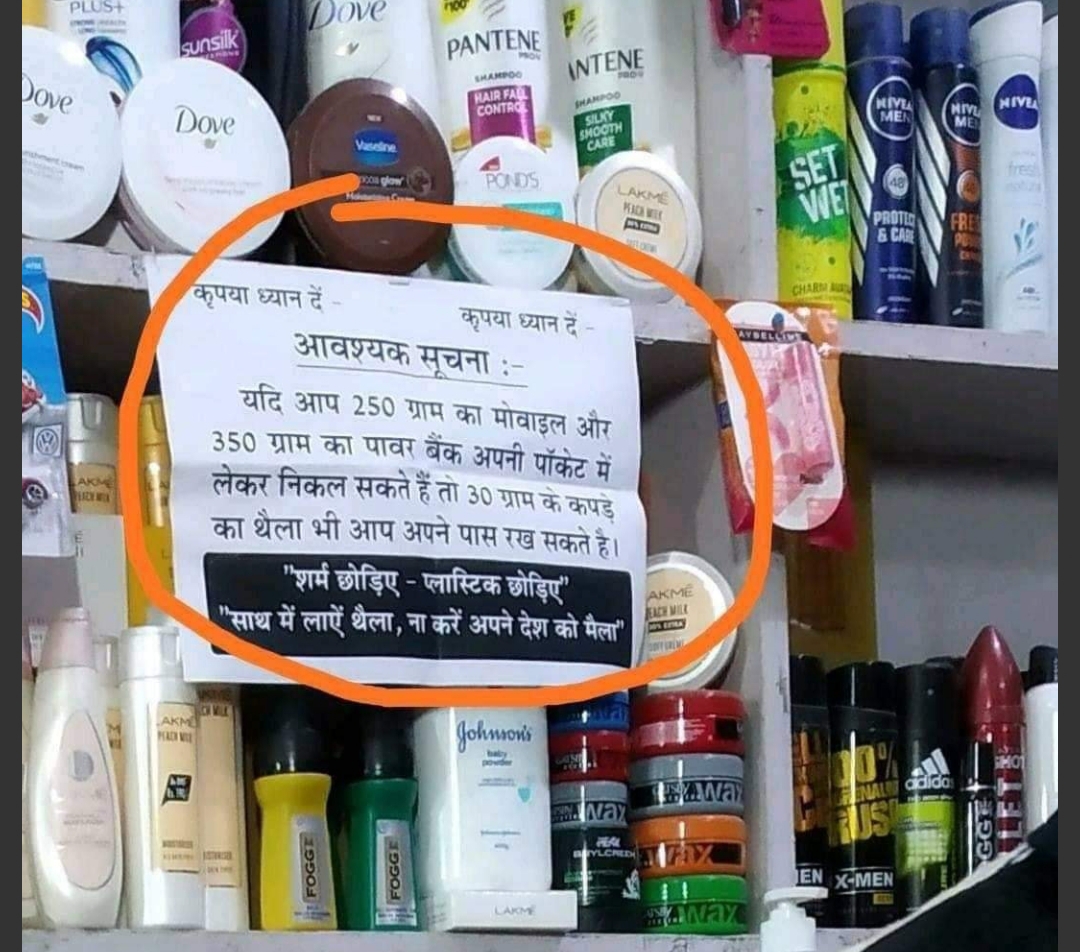 PLUS+
sunsilk
Dove
PANTENE
PRO-V
SHAMPOO
HAIR FALL
CONTROL
SHAMPOO
SILKY
SMOOTH
CARE
Dove
NEW
Vaseline
glow
POND'S
LAKMÉ
PEACH MILK
SET
WET
NIVEA
MEN
PROTECT
& CARE
NIVEA
कृपया ध्यान दें -
कृपया ध्यान दें -
आवश्यक सूचना :-
यदि आप 250 ग्राम का मोवाइल और
350 ग्राम का पावर बैंक अपनी पॉकेट में
लेकर निकल सकते हैं तो 30 ग्राम के कपड़े
का थैला भी आप अपने पास रख सकते है।
"शर्म छोड़िए - प्लास्टिक छोड़िए"
"साथ में लाऐं थैला, ना करें अपने देश को मैला"
LAKMÉ
PEACH MILK
FOGG
FOGG
Johnson's
baby
powder
LAKMÉ
wax
wax
wax
wax
X-MEN
adidas